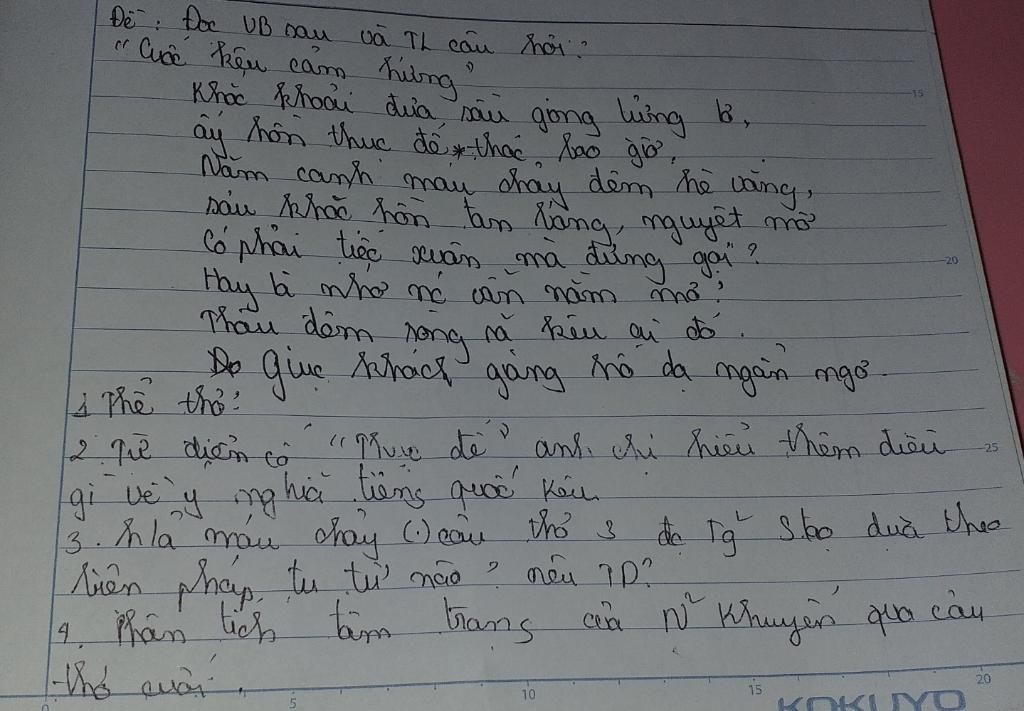 Đề: Đọc VB sau và TL câu hỏi:
"Cuốc kêu cảm hứng"
Khắc khoải đưa sầu giọng lửng lơ,
ấy hồn thục đế thác bao giờ,
Năm canh máu chảy đêm hè vắng,
sáu khắc hồn tan bóng nguyệt mờ
Có phải tiếc xuân mà đứng gọi?
Hay là nhớ nc vẫn nằm mơ?
Thâu đêm ròng rã kêu ai đó.
Giục khách giang hồ dạ ngẩn ngơ.
1 Thể thơ:
2. Từ điển cố "Thục đế" anh chị hiểu thêm điều
gì về ý nghĩa tiếng quốc kêu.
3. h/a máu chảy (.) câu thơ 3 đc Tg² S.tạo dựa theo
biện pháp tu từ nào? nêu TD?
4. Phân tích tâm trạng của N² Khuyến qua câu
thơ cuối.
15
20
25
0 5 10 15 20
KOKUYO